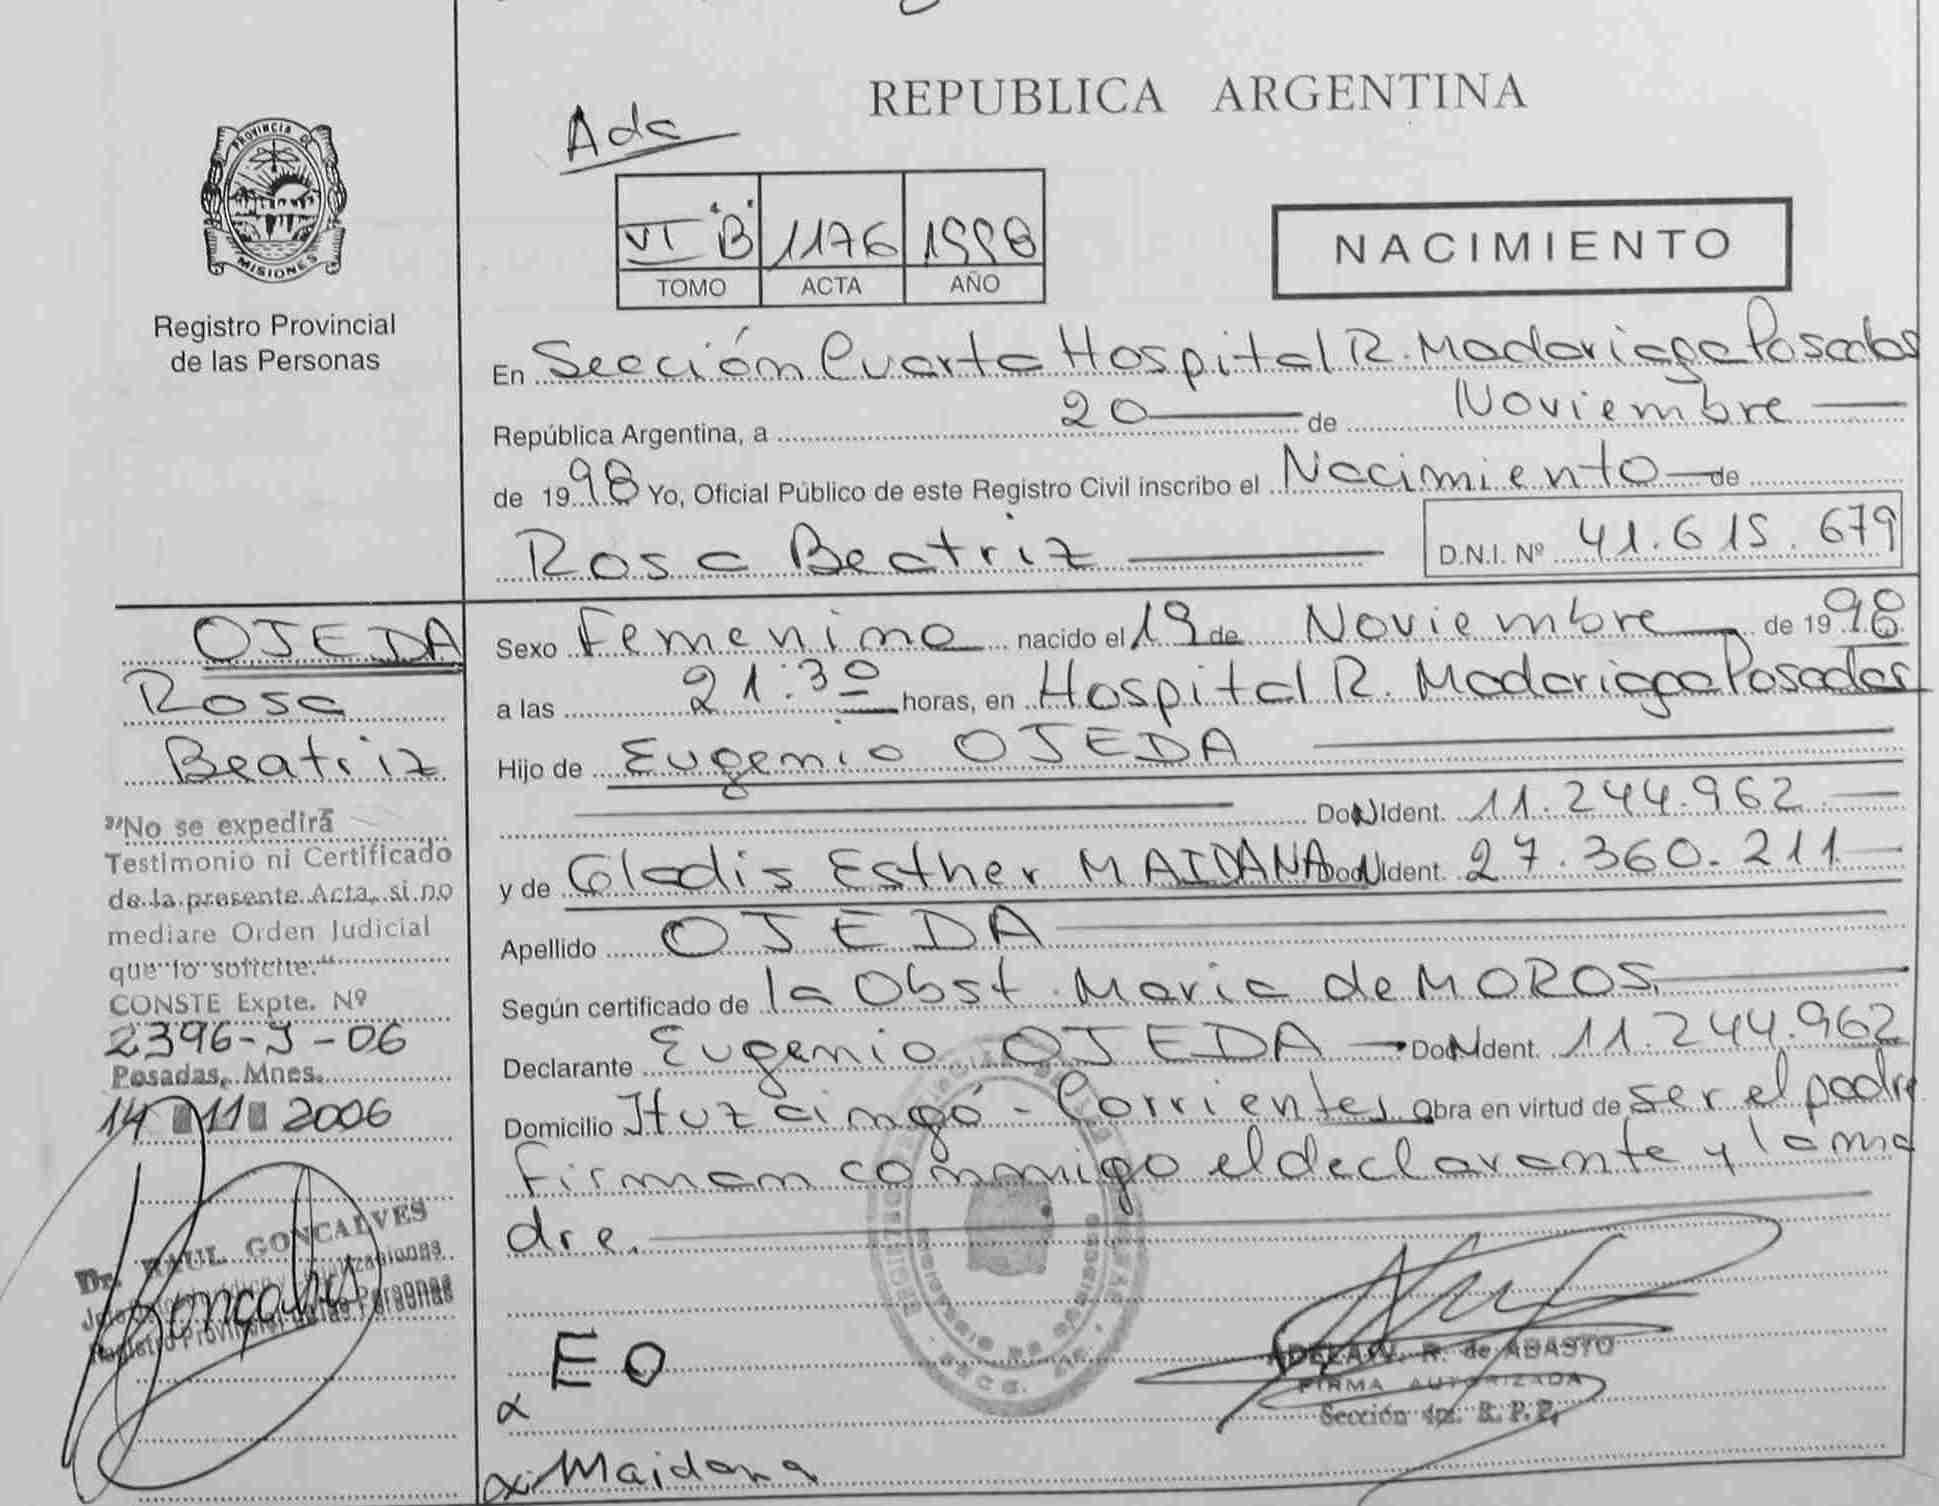 REPUBLICA ARGENTINA
PROVINCIA DE
MISIONES
Registro Provincial
de las Personas
Ada
VI "B" 1176 1998
TOMO ACTA AÑO
NACIMIENTO
En Sección Cuarta Hospital R. Madariaga Posadas
República Argentina, a 20 de Noviembre
de 1998 Yo, Oficial Público de este Registro Civil inscribo el Nacimiento de
Rosa Beatriz D.N.I. Nº 41.615.679
OJEDA
Rosa
Beatriz
"No se expedirá
Testimonio ni Certificado
de la presente Acta, si no
mediare Orden Judicial
que lo solicite."
CONSTE Expte. Nº
2396-J-06
Posadas, Mnes.
14 11 2006
Dr. RAUL GONCALVES
Registro Provincial de las Personas
Sexo Femenino nacido el 19 de Noviembre de 1998
a las 21:30 horas, en Hospital R. Madariaga Posadas
Hijo de Eugenio OJEDA
DocNIdent. 11.244.962
y de Gladis Esther MAIDANA DocNIdent. 27.360.211
Apellido OJEDA
Según certificado de la Obst. Maria de MOROS
Declarante Eugenio OJEDA DocNIdent. 11.244.962
Domicilio Ituzaingó - Corrientes Obra en virtud de ser el padre
firman conmigo el declarante y la ma
dre.
E O
Maidana
ADELA V. R. de ABASTO
FIRMA AUTORIZADA
Sección 4ta. R. P. P.